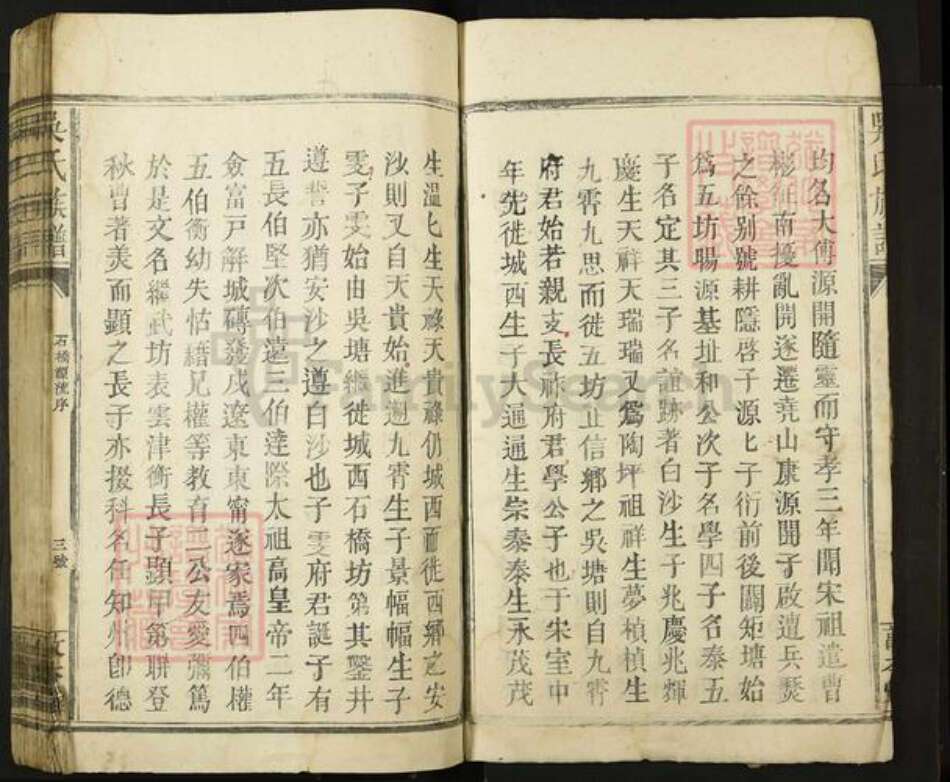 均名大傅源開隨靈而守孝三年聞宋祖遣曹
彬征南擾亂開遂遷堯山康源開子啟遭兵燹
之餘別號耕隱啓子源匕子衍前後闢矩塘始
爲五坊賜源基址和公次子名學四子名泰五
子名定其三子名誼跡著白沙生子兆慶兆輝
慶生天祥天瑞瑞又爲陶坪祖祥生夢楨楨生
九霄九思而徙五坊止信鄉之吳塘則自九霄
府君始若親支長祚府君學公子也于宋室中
年先徙城西生子大通通生崇泰泰生永茂茂
生溫匕生天祿天貴祿仍城西而徙西鄉之安
沙則又自天貴始進邇九霄生子景幅幅生子
雯子雯始由吳塘繼徙城西石橋坊第其鑿井
遵訾亦猶安沙之遵白沙也子雯府君誕子有
五長伯堅次伯遠三伯達際太祖高皇帝二年
僉富戶解城磚發戍遼東東甯遂家焉四伯權
五伯衡幼失怙縉兄權等教育二公友愛彌篤
於是文名繼武坊表雲津衡長子顯甲第聯登
秋曹著美而顯之長子亦掇科名任知州卽德
吳氏族譜
石橋
序
三
吳氏族譜